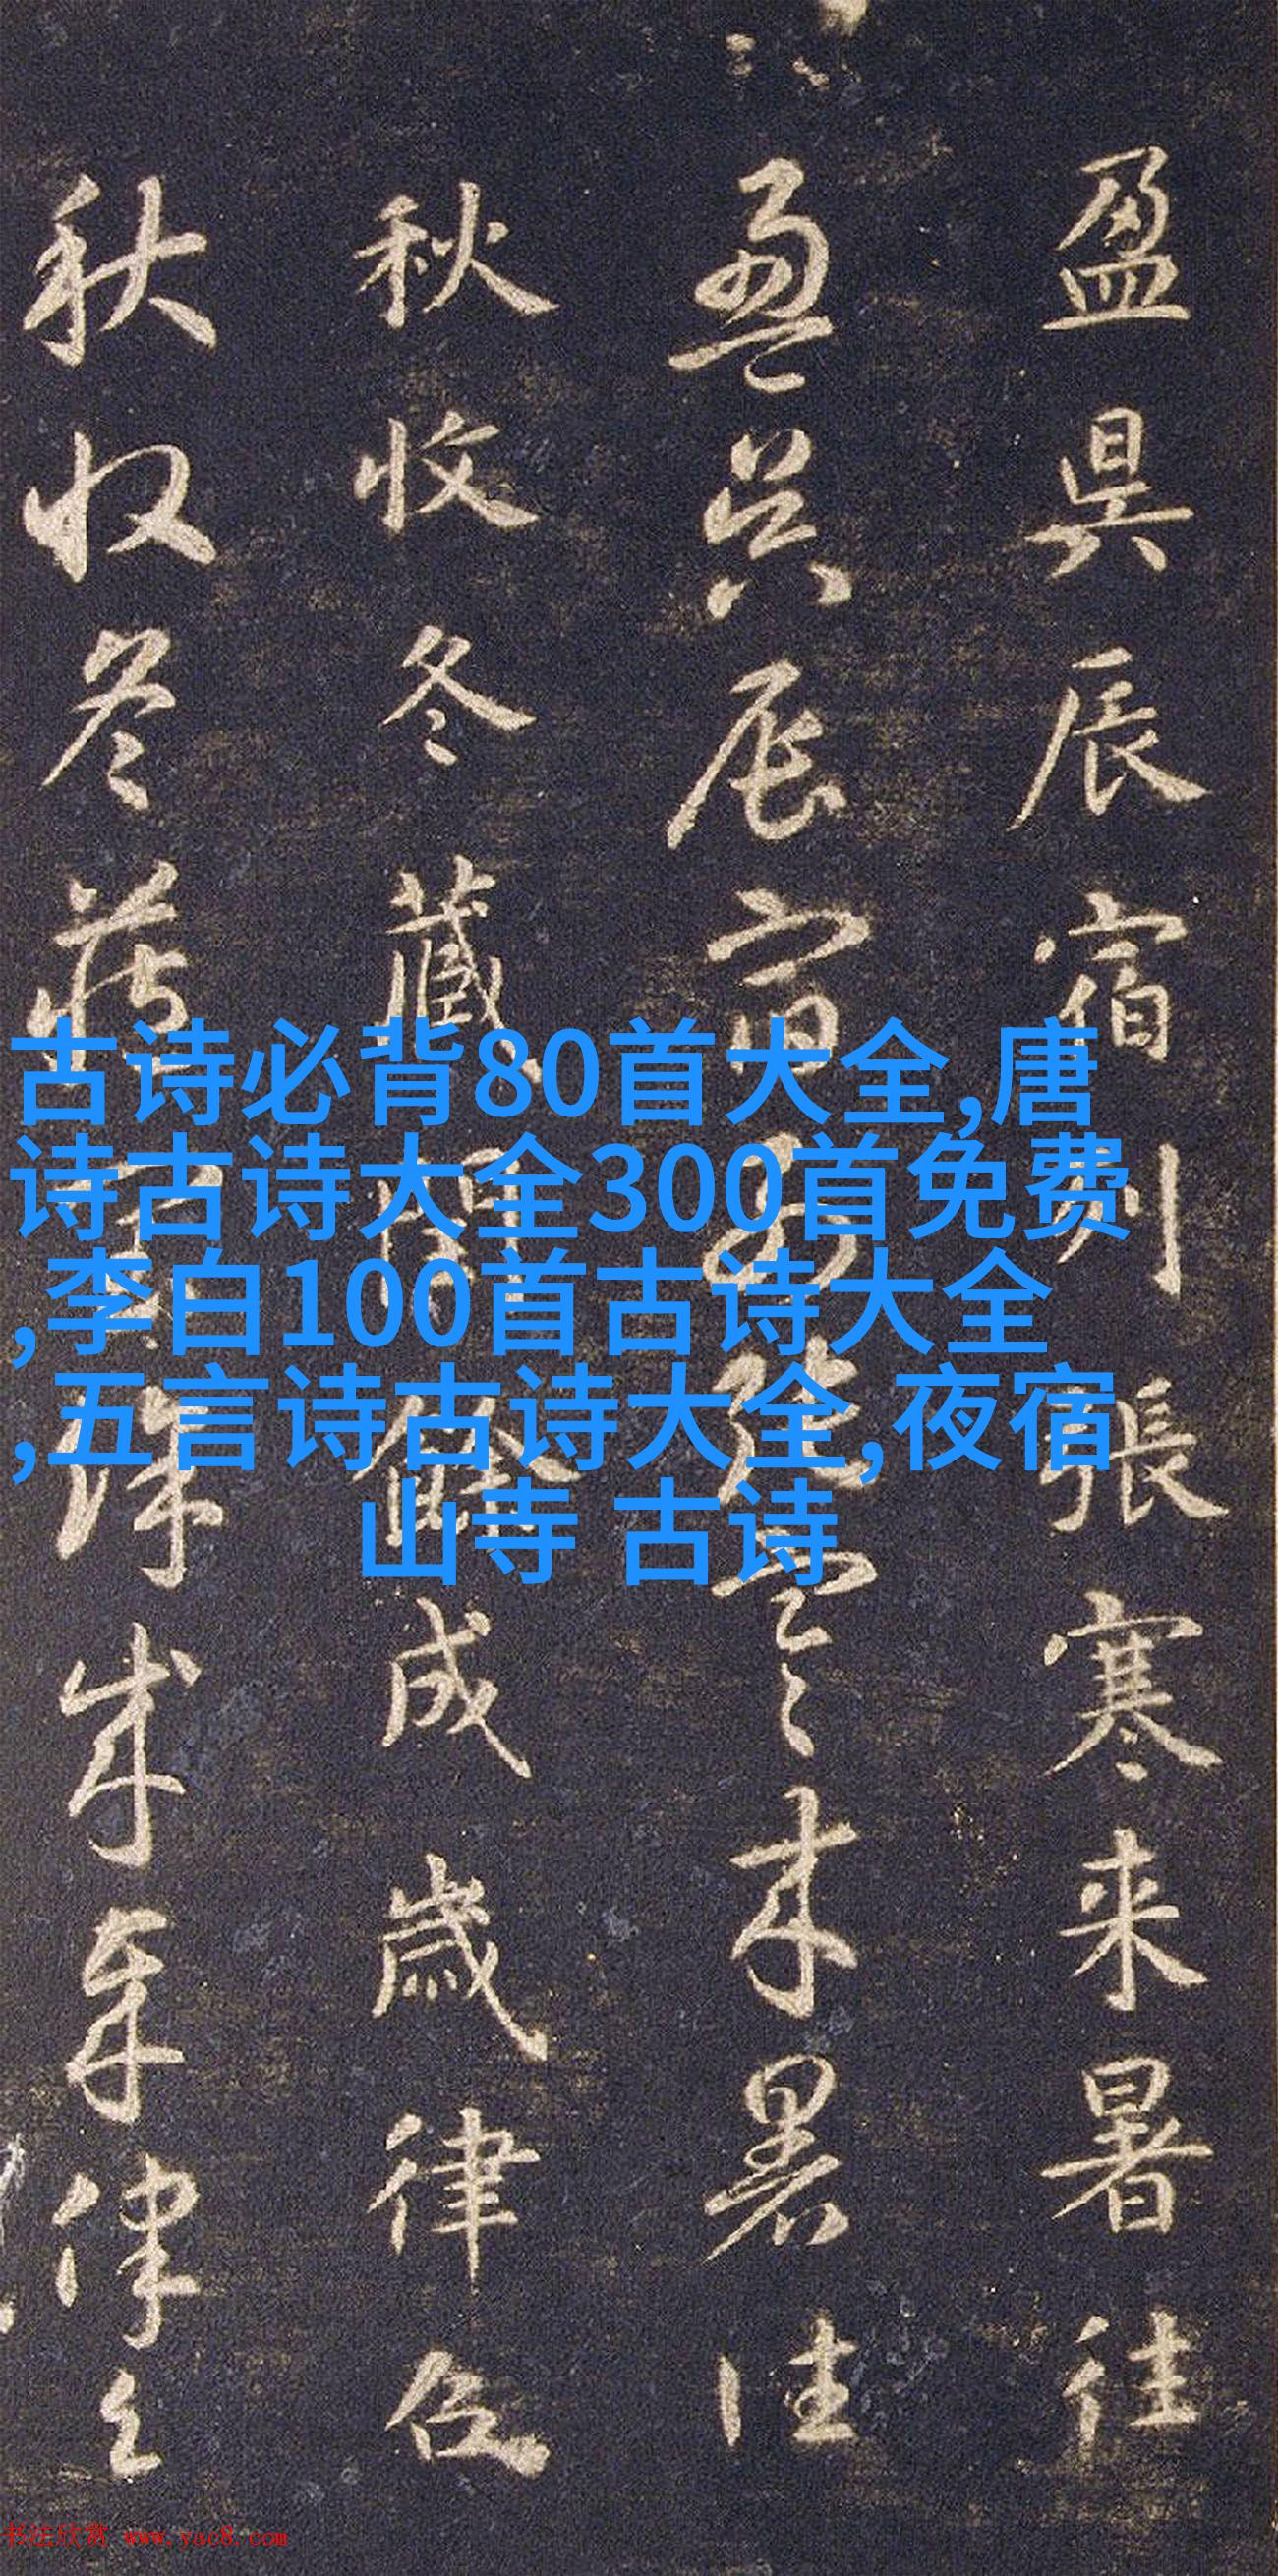 盈昃辰宿列張寒来暑往
盈昃辰宿列張寒来暑往
秋收冬藏閏餘成歲律呂
秋收冬藏閏餘成歲律呂
古诗必背80首大全,唐
诗古诗大全300首免费
,李白100首古诗大全
,五言诗古诗大全,夜宿
山寺 古诗
书法欣赏 www.yac8.com